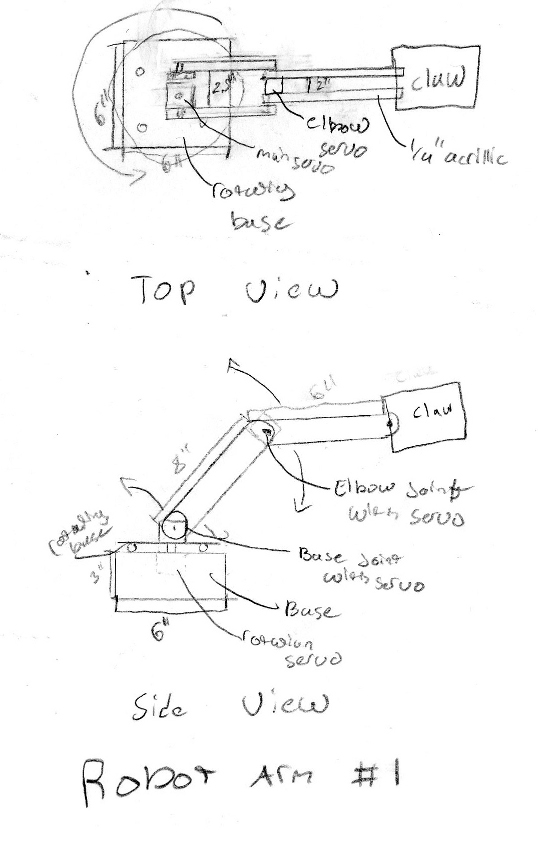 6"
2.5"
2"
claw
elbow
servo
1/4" acrillic
main
servo
6"
rotating
base
Top View
6"
claw
8"
Elbow Joint
with servo
rotating
base
Base Joint
with servo
3"
Base
6"
rotation
servo
Side View
Robot Arm #1